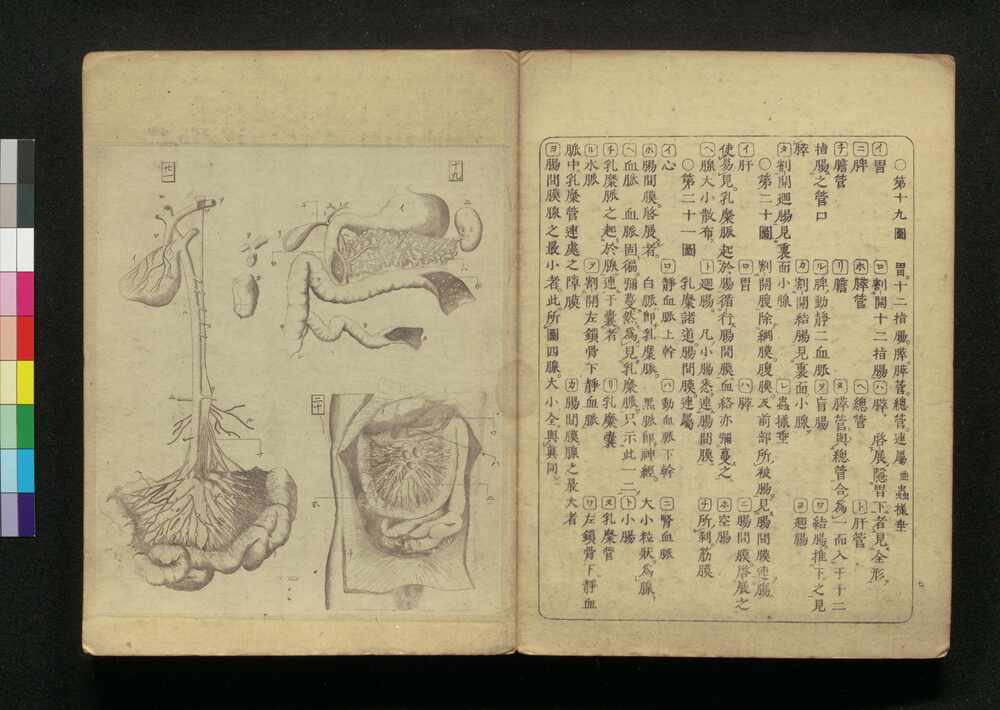 ○第十九圖　胃。十二指腸。膵。膵管。總管。連屬 並蟲様垂
㋑胃　㋺割開十二指腸　㋩膵。啓展隱胃下者見全形。
㋥脾　㋭膵管　㋬總管　㋣肝管
㋠膽管　㋷膽　㋦膵管與總管合為一而入于十二
指腸之管口　㋸脾動靜二血脈　㋾盲腸　㋻結腸推下之見
膵　㋕割開結腸見裏面小腺。　㋵廻腸
㋟割開廻腸見裏面小腺　㋹蟲様垂
○第二十圖　割開腹除網膜。腹膜。及前部所被腸。見腸間膜連腸
㋑肝　㋺胃　㋩膵　㋥腸間膜啓展之
使易見。乳糜脈起於腸循行。腸間膜血絡亦彌蔓之　㋭空腸
㋬腺大小散布。　㋣廻腸。凡小腸悉連腸間膜　㋠所剥筋膜
○第二十一圖　乳糜諸道腸間膜連屬
㋑心　㋺靜血脈上幹　㋩動血脈下幹　㋥腎血脈
㋭腸間膜啓展者。白脈即乳糜脈。黑脈即神經。大小粒狀為腺。
㋬血脈　血脈固徧彌蔓然為見乳糜脈。只示此一二　㋣小腸
㋠乳糜脈之起於腺連于囊者　㋷乳糜囊　㋦乳糜管
㋸水脈　㋾割開左鎖骨下靜血脈　㋻左鎖骨下靜血
脈中乳糜管連處之障膜　㋕腸間膜腺之最大者
㋵腸間膜腺之最小者。此所圖四腺。大小全與眞同。
十九
二十
廿一